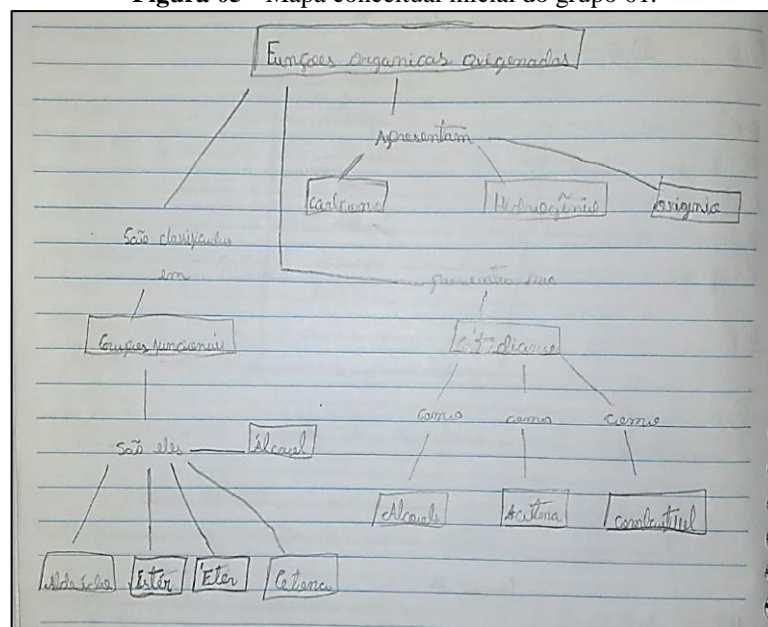 Figura 03 - Mapa conceitual inicial do grupo 01.
Funções organicas oxigenadas
Apresentam
Carbono Hidrogênio oxignio
São
em presentes no
Grupos funcionais Cotidiano
como como como
São eles Álcool
Alcool Acetona Combustivel
Aldeído Estér Éter Cetona